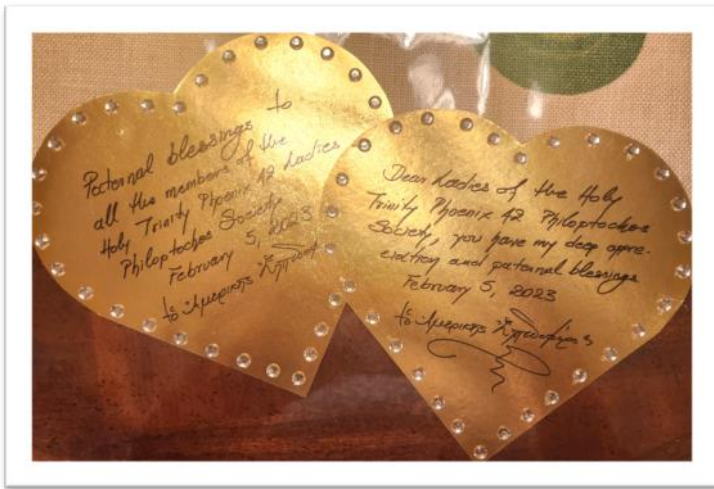 Paternal blessings to
all the members of the
Holy Trinity Phoenix AZ Ladies
Philoptochos Society
February 5, 2023
Dear Ladies of the Holy
Trinity Phoenix AZ Philoptochos
Society, you have my deep appre-
ciation and paternal blessings
February 5, 2023